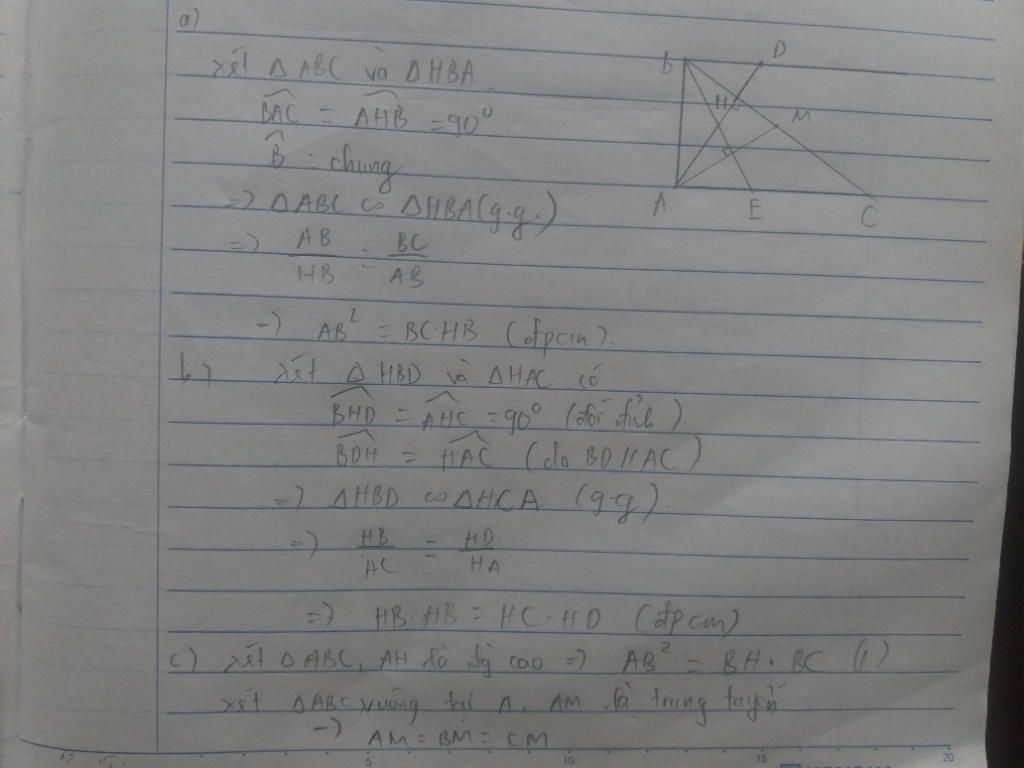 a)
Xét ΔABC và ΔHBA
B D
H M
A E C
BAC = AHB = 90°
B : chung
=> ΔABC ∽ ΔHBA (g.g.)
=> AB/HB = BC/AB
=> AB² = BC.HB (đpcm).
b) Xét ΔHBD và ΔHAC có
BHD = AHC = 90° (đối đỉnh)
BDH = HAC (do BD//AC)
=> ΔHBD ∽ ΔHCA (g.g)
=> HB/HC = HD/HA
=> HB.HB = HC.HD (đpcm)
c) Xét ΔABC, AH là đg cao => AB² = BH.BC (1)
Xét ΔABC vuông tại A, AM là trung tuyến
=> AM = BM = CM
5 10 15 20